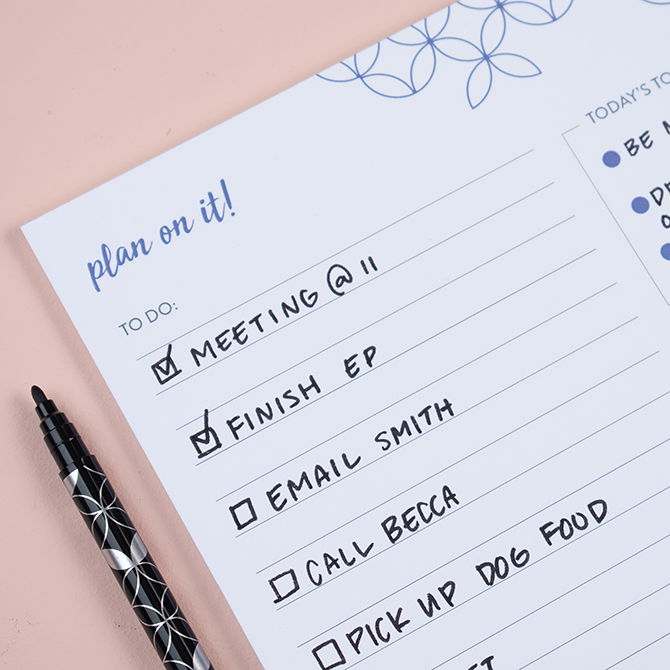 plan on it!
TO DO:
MEETING @ 11
FINISH EP
EMAIL SMITH
CALL BECCA
PICK UP DOG FOOD
TODAY'S
BE